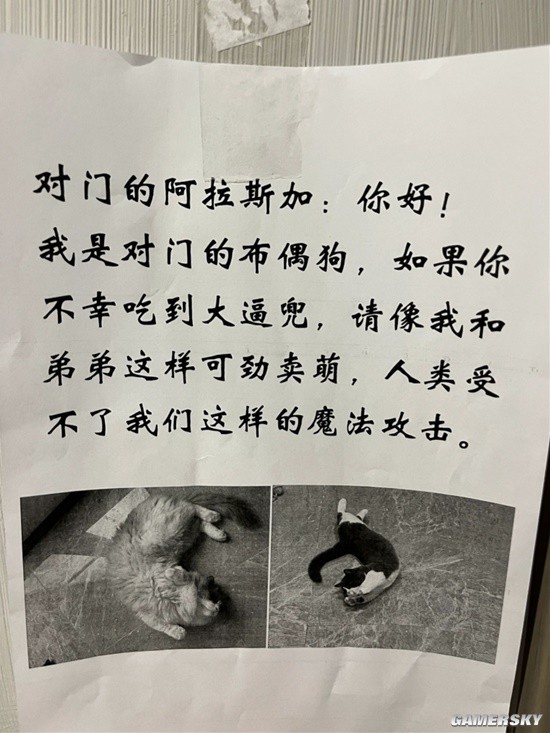 对门的阿拉斯加：你好！
我是对门的布偶狗，如果你
不幸吃到大逼兜，请像我和
弟弟这样可劲卖萌，人类受
不了我们这样的魔法攻击。
GAMERSKY